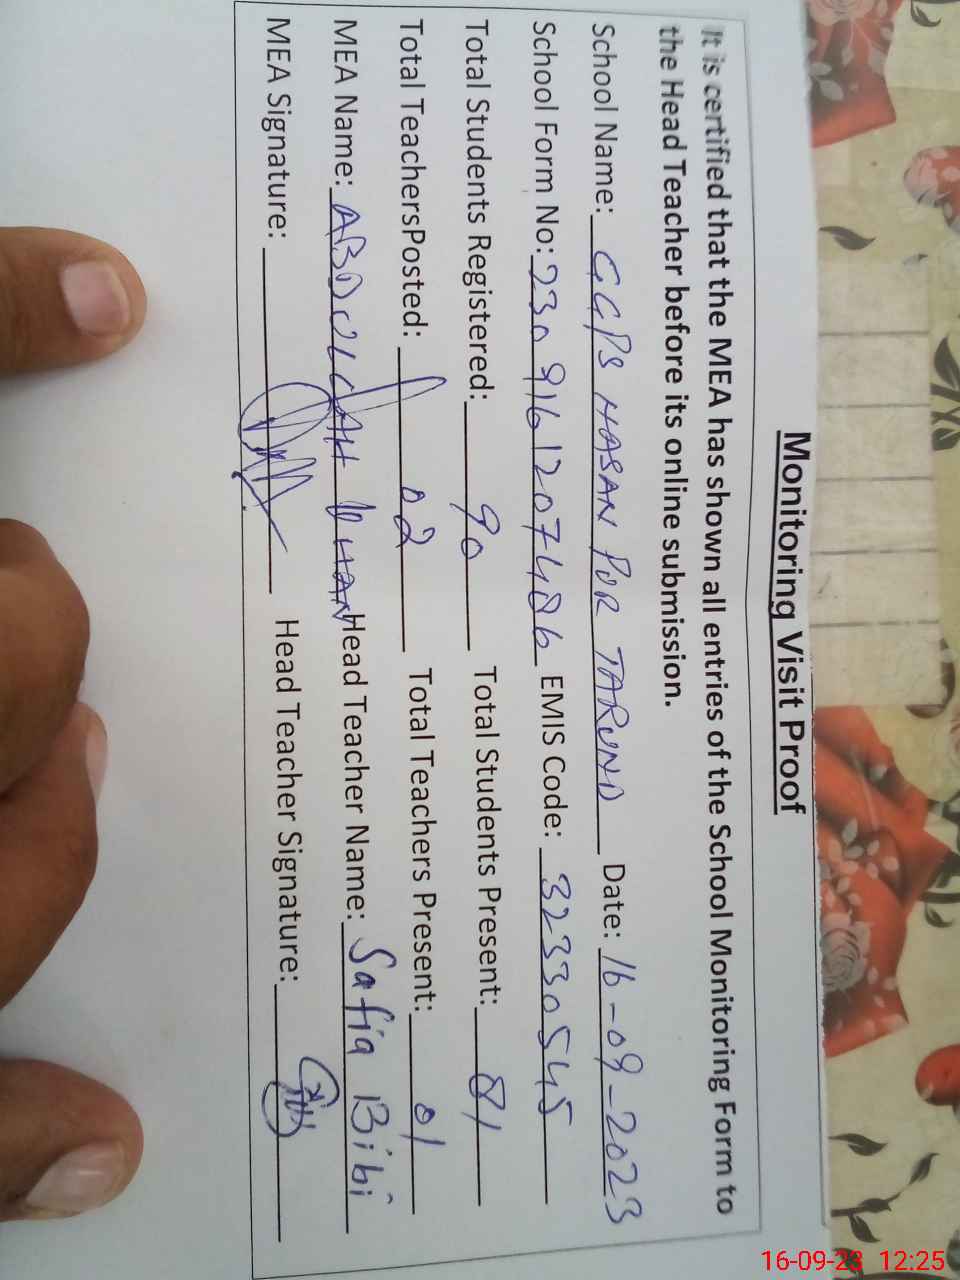 Monitoring Visit Proof
It is certified that the MEA has shown all entries of the School Monitoring Form to
the Head Teacher before its online submission.
School Name: GGPS HASAN POR TARUND Date: 16-09-2023
School Form No: 2309161207486 EMIS Code: 32330545
Total Students Registered: 90 Total Students Present: 81
Total TeachersPosted: 02 Total Teachers Present: 01
MEA Name: ABDULLAH KHAN Head Teacher Name: Safia Bibi
MEA Signature: Head Teacher Signature:
16-09-23 12:25